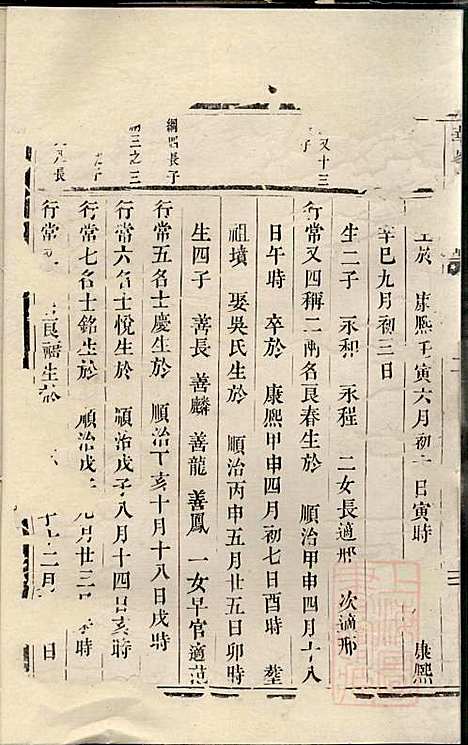 於 康熙壬寅六月初十日寅時 康熙
辛巳九月初三日
生二子 永和 永程 二女長適邢 次適邢
又十三
子
行常又四稱二南名良春生於 順治甲申四月十八
日午時 卒於 康熙甲申四月初七日酉時 塟
祖墳 娶吳氏生於 順治丙申五月廿五日卯時
生四子 善長 善麟 善龍 善鳳 一女早官適范
綱四長子
行常五名士慶生於 順治丁亥十月十八日戌時
三之三
子
行常六名士悅生於 順治戊子八月十四日亥時
子
行常七名士銘生於 順治戊子 九月廿三日 時
長
行常 良福生於 十二月 日